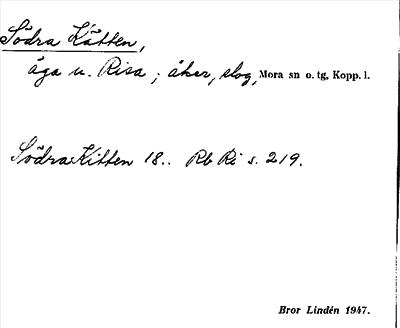 Södra Kätten,
äga u. Risa ; åker, slog, Mora sn o. tg, Kopp. l.
Södra Kitten 18.. Rb Ri s. 219.
Bror Lindén 1947.